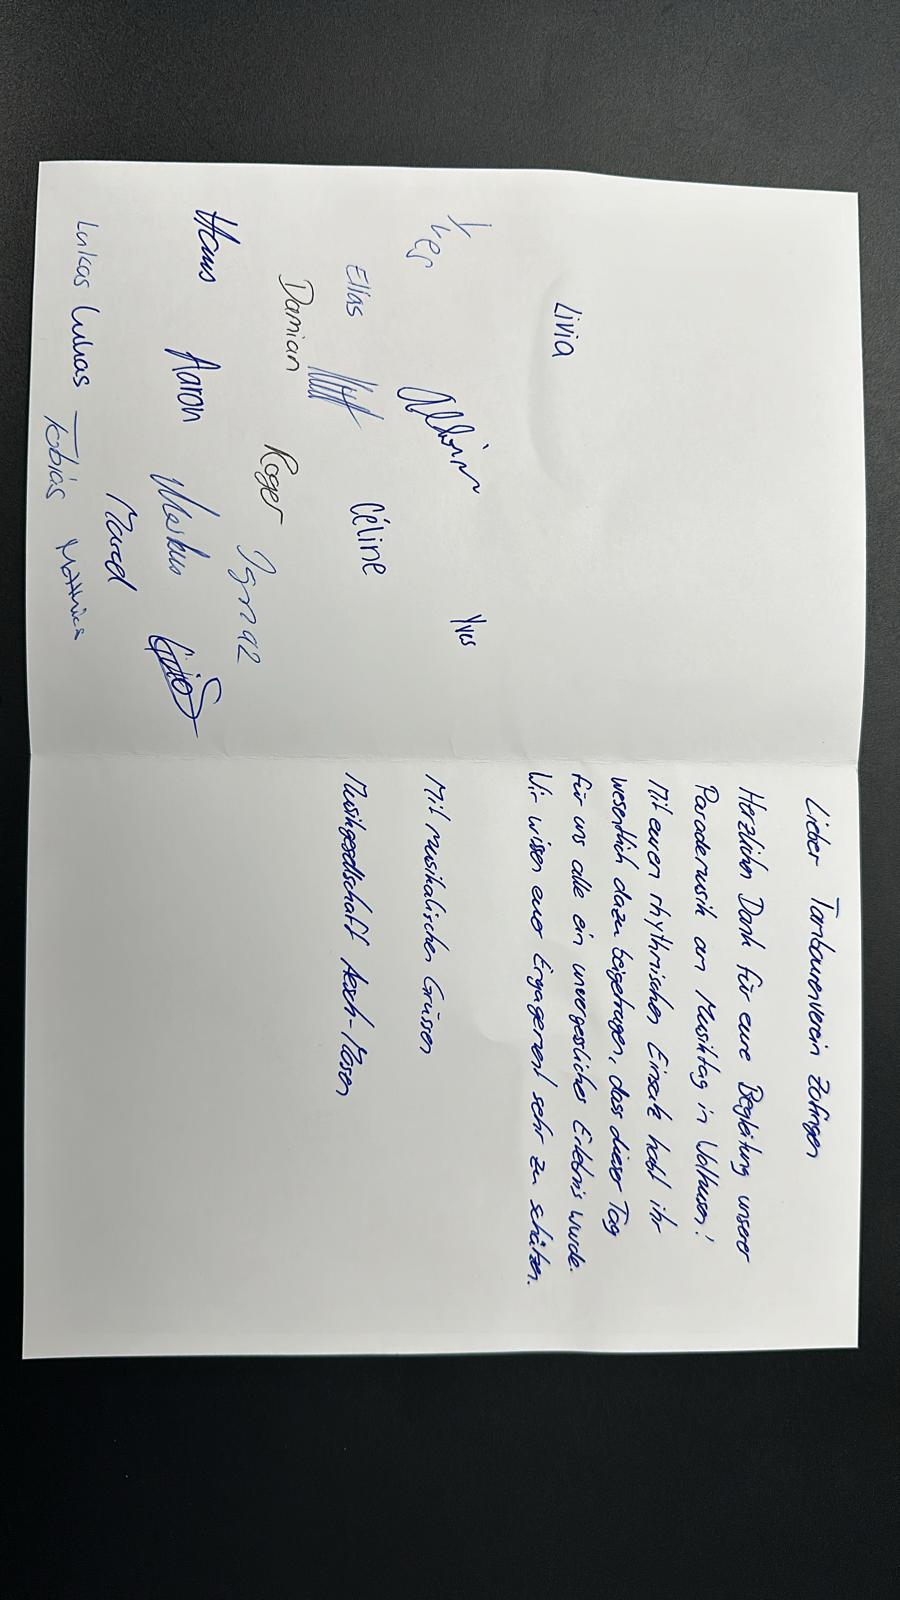 Livia
Yves
Yves
Elias
Céline
Damian
Roger
Ignaz
Hans
Aaron
Markus
Marcel
Lukas Lukas Tobias Matthias
Lieber Tambourenverein Zofingen
Herzlichen Dank für eure Begleitung unserer
Parademusik am Musiktag in Wolhusen!
Mit eurem rhythmischen Einsatz habt ihr
wesentlich dazu beigetragen, dass dieser Tag
für uns alle ein unvergessliches Erlebnis wurde.
Wir wissen euer Engagement sehr zu schätzen.
Mit musikalischen Grüssen
Musikgesellschaft Aesch-Mosen